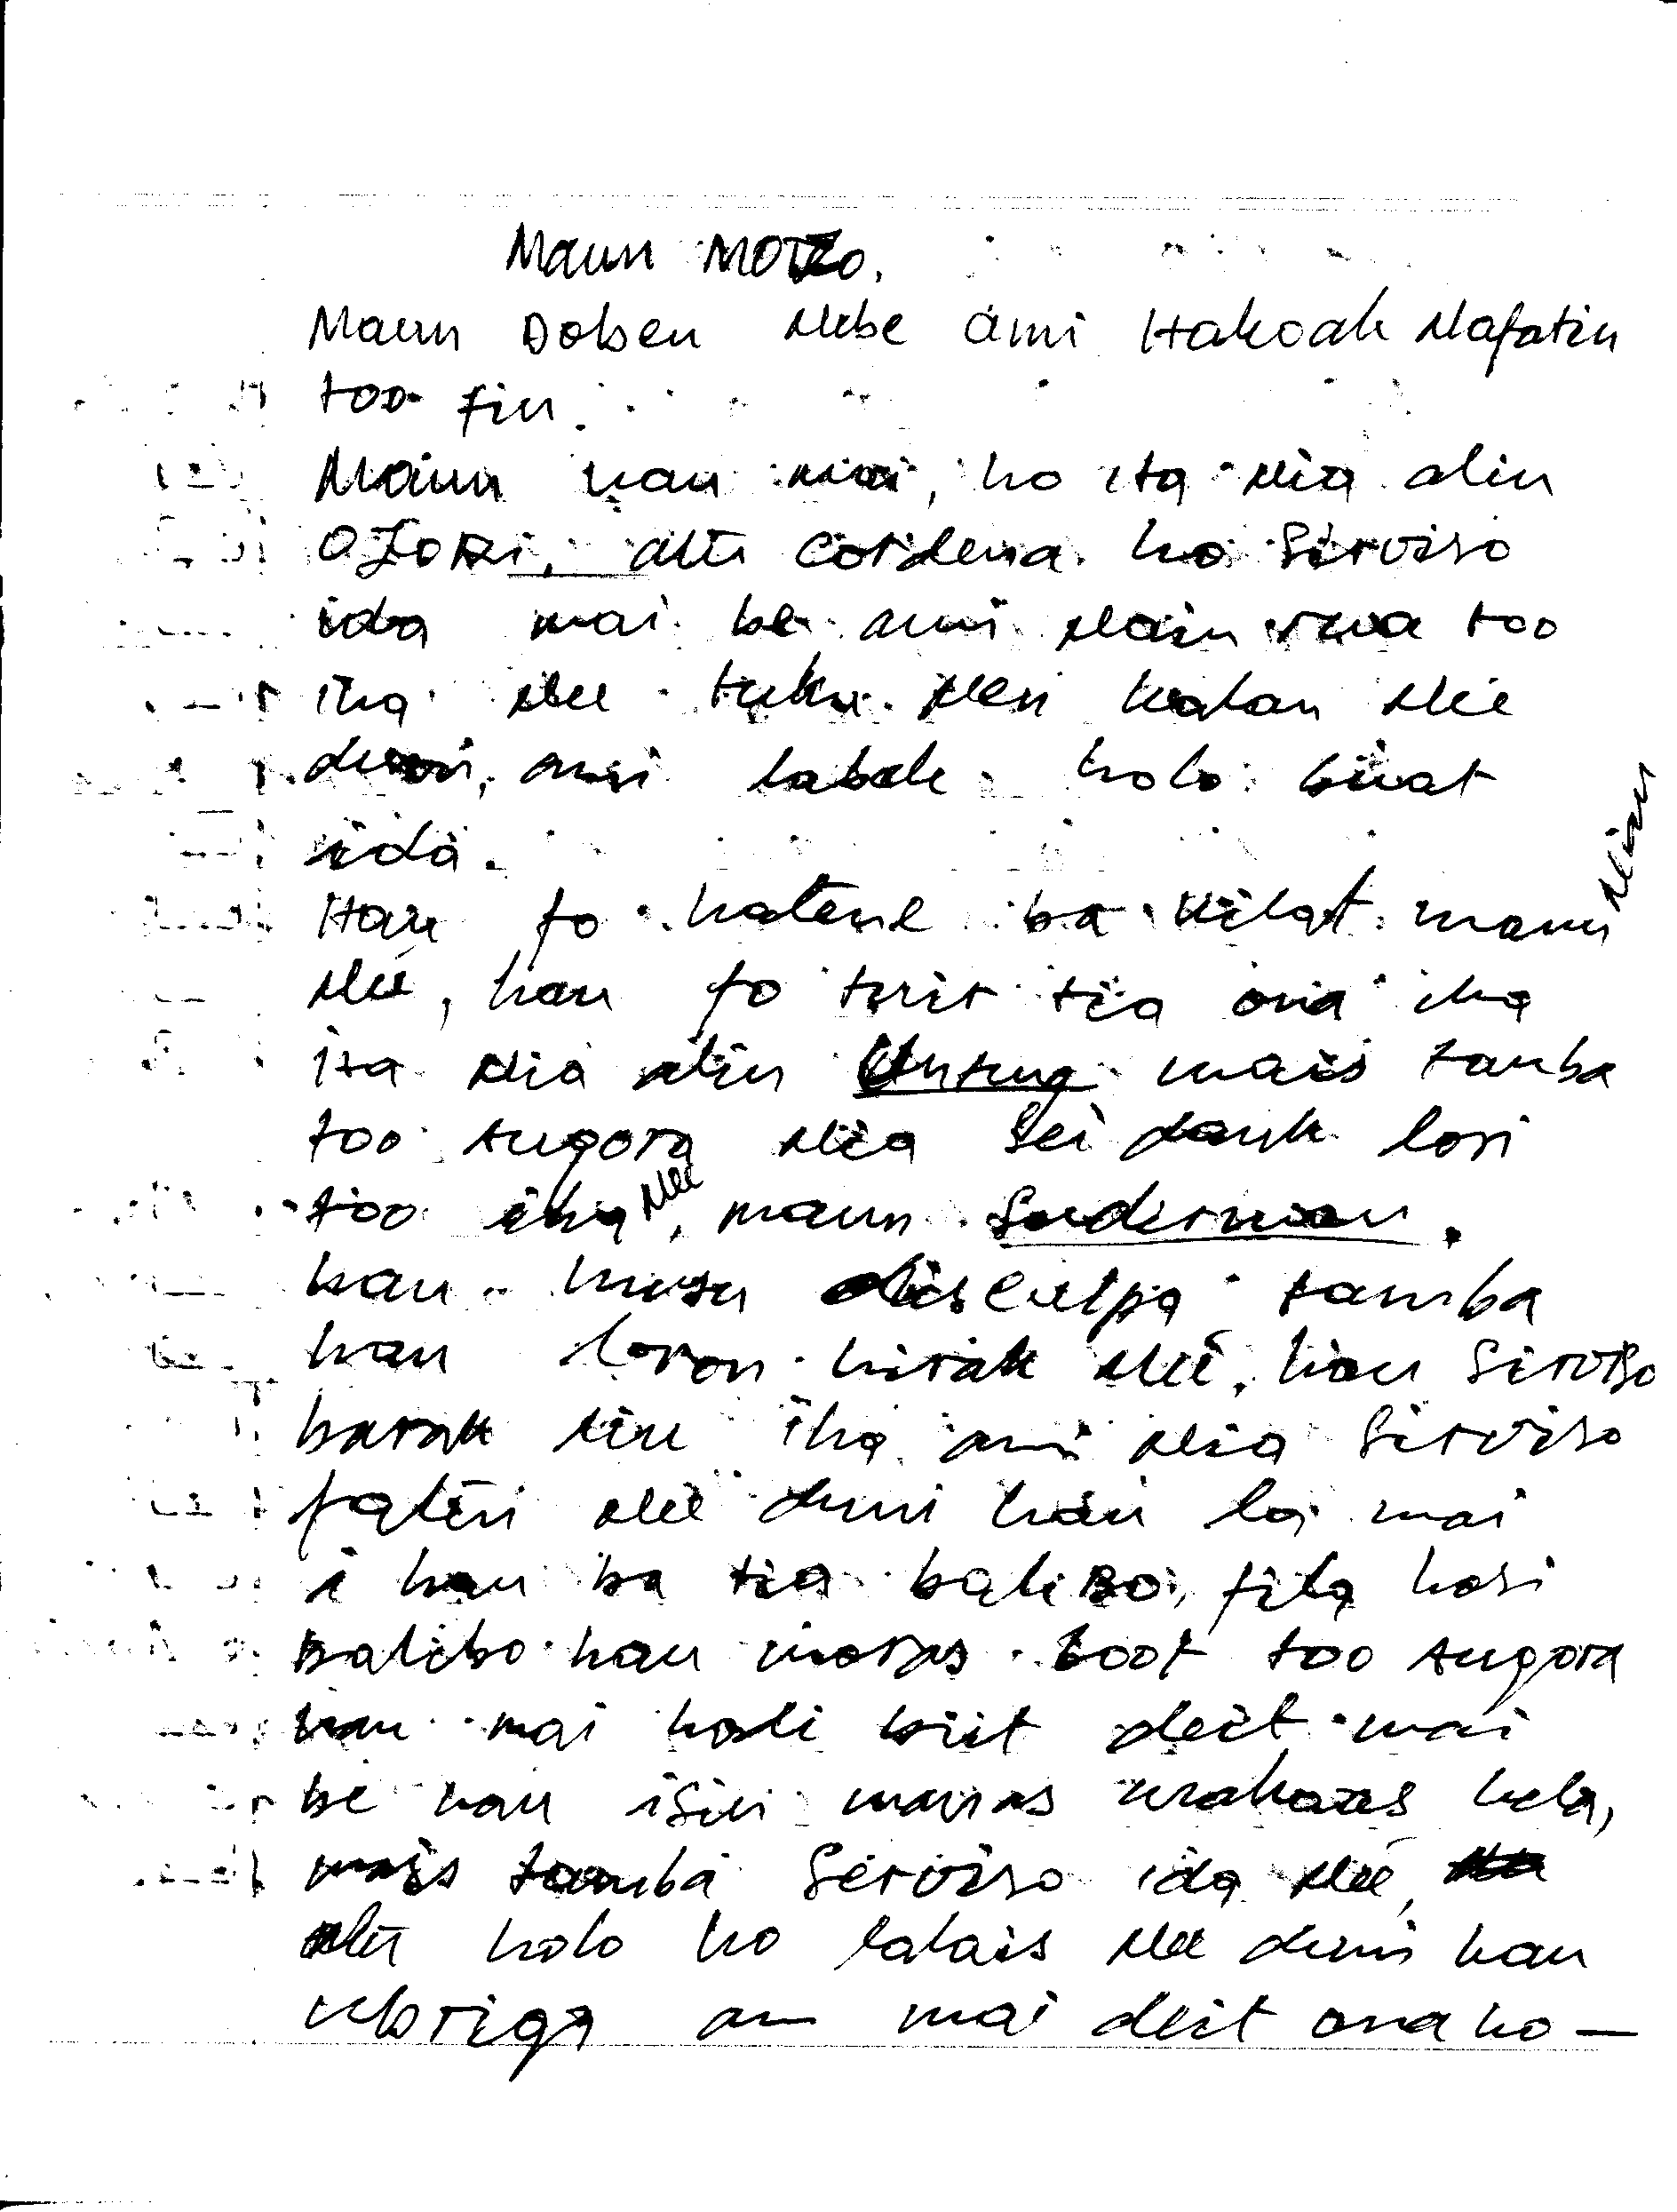 Maun MOTZO.
Maun Doben Nebe ami Hakoak Nafatin
too fin.
Maun hau mai, ho ita Nia alin
OJORI, atu cordena ho Serviso
ida mai be ami Nain rua too
iha Nee tuku Nen kalan Nee
duni, ami labele halo buat
ida.
Hau fo hatene ba kilat maun Nian
Nee, hau fo turir tia ona iha
ita Nia alin Untung mais tanba
too Augora Nia Sei dauk lori
too iha Nee, maun Suderman.
hau husu disculpa tamba
hau loron hirak Nee, hau Serviso
barak liu iha ami Nia Serviso
fatin Nee duni hau la mai
i hau ba tia baliBo, fila hosi
balibo hau moras boot too Augora
hau mai hodi biit deit mai
be hau isin manas makaas hela,
mais tamba Serviso ida Nee,
atu halo ho lalais Nee duni hau
ubriga an mai deit ona ho-